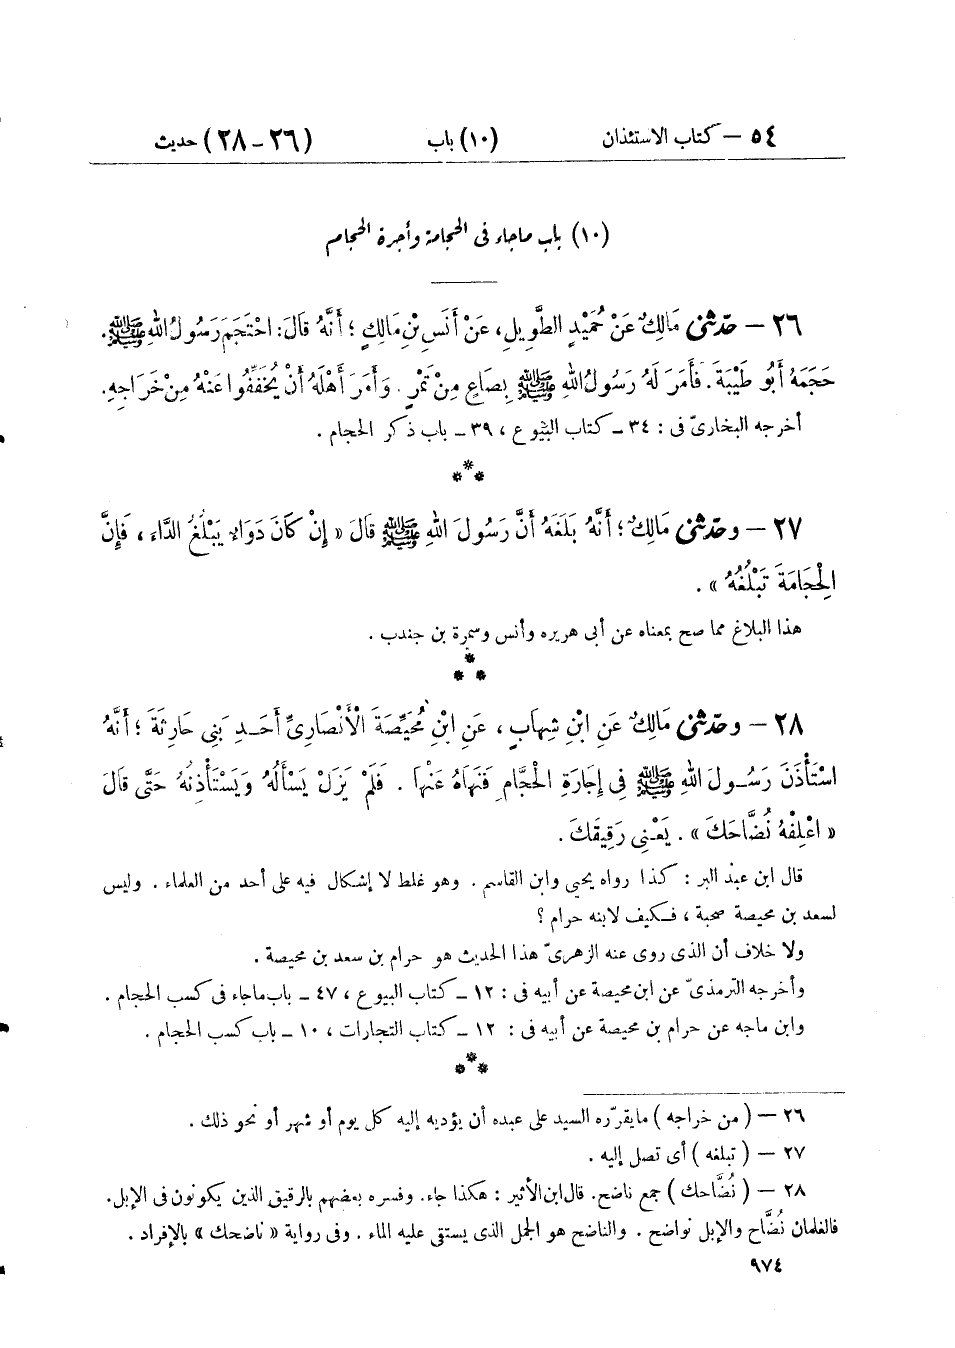 ٥٤ – كتاب الاستئذان (١٠) باب (٢٦ – ٢٨) حديث
(١٠) باب ماجاء فى الحجامة وأجرة الحجام
٢٦ – حَدَّثَنِى مَالِكٌ عَنْ حُمَيْدٍ الطَّوِيلِ، عَنْ أَنَسِ بْنِ مَالِكٍ ؛ أَنَّهُ قَالَ: احْتَجَمَ رَسُولُ اللهِ ﷺ.
حَجَمَهُ أَبُو طَيْبَةَ. فَأَمَرَ لَهُ رَسُولُ اللهِ ﷺ بِصَاعٍ مِنْ تَمْرٍ. وَأَمَرَ أَهْلَهُ أَنْ يُخَفِّفُوا عَنْهُ مِنْ خَرَاجِهِ.
أخرجه البخارىّ فى : ٣٤ – كتاب البيوع ، ٣٩ – باب ذكر الحجام .
***
٢٧ – وحَدَّثَنِى مَالِكٌ ؛ أَنَّهُ بَلَغَهُ أَنَّ رَسُولَ اللهِ ﷺ قَالَ « إِنْ كَانَ دَوَاءٌ يَبْلُغُ الدَّاءَ ، فَإِنَّ
الْحِجَامَةَ تَبْلُغُهُ » .
هذا البلاغ مما صح بمعناه عن أبى هريره وأنس وسمرة بن جندب .
***
٢٨ – وحَدَّثَنِى مَالِكٌ عَنِ ابْنِ شِهَابٍ ، عَنِ ابْنِ مُحَيِّصَةَ الْأَنْصَارِىِّ أَحَدِ بَنِى حَارِثَةَ ؛ أَنَّهُ
اسْتَأْذَنَ رَسُولَ اللهِ ﷺ فِى إِجَارَةِ الْحَجَّامِ فَنَهَاهُ عَنْهَا . فَلَمْ يَزَلْ يَسْأَلُهُ وَيَسْتَأْذِنُهُ حَتَّى قَالَ
« اعْلِفْهُ نُضَّاحَكَ » . يَعْنِى رَقِيقَكَ .
قال ابن عبد البر : كذا رواه يحيى وابن القاسم . وهو غلط لا إشكال فيه على أحد من العلماء . وليس
لسعد بن محيصة صحبة ، فكيف لابنه حرام ؟
ولا خلاف أن الذى روى عنه الزهرىّ هذا الحديث هو حرام بن سعد بن محيصة .
وأخرجه الترمذىّ عن ابن محيصة عن أبيه فى : ١٢ – كتاب البيوع ، ٤٧ – باب ماجاء فى كسب الحجام .
وابن ماجه عن حرام بن محيصة عن أبيه فى : ١٢ – كتاب التجارات ، ١٠ – باب كسب الحجام .
***
٢٦ – ( من خراجه ) مايقرّره السيد على عبده أن يؤديه إليه كل يوم أو شهر أو نحو ذلك .
٢٧ – ( تبلغه ) أى تصل إليه .
٢٨ – ( نُضَّاحك ) جمع ناضح. قال ابن الأثير : هكذا جاء. وفسره بعضهم بالرقيق الذين يكونون فى الإبل.
فالغلمان نُضَّاح والإبل نواضح . والناضح هو الجمل الذى يستقى عليه الماء . وفى رواية « ناضحك » بالإفراد .
٩٧٤